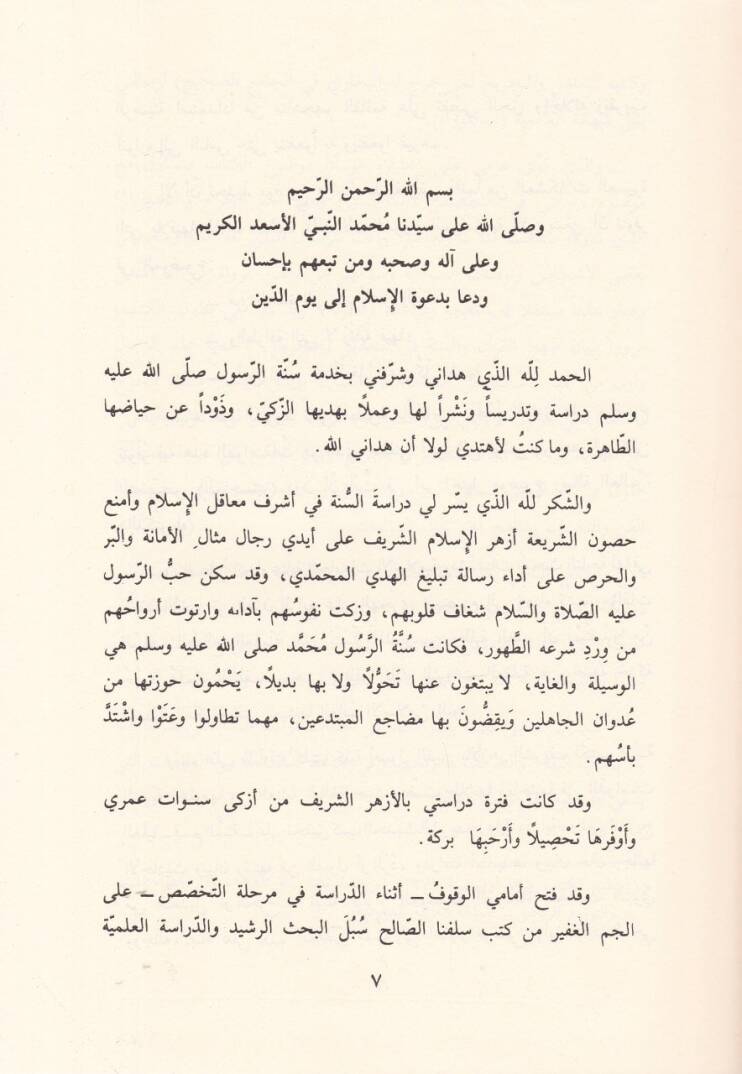 بسم الله الرّحمن الرّحيم
وصلّى الله على سيّدنا مُحمّد النّبـيّ الأسعد الكريم
وعلى آله وصحبه ومن تبعهم بإحسان
ودعا بدعوة الإسلام إلى يوم الدّين
الحمد لِلّه الذّي هداني وشرّفني بخدمة سُنّة الرّسول صلّى الله عليه
وسلم دراسة وتدريساً ونَشْراً لها وعملًا بهديها الزّكيّ، وذَوْداً عن حياضها
الطّاهرة، وما كنتُ لأهتدي لولا أن هداني الله.
والشّكر للّه الذّي يسّر لي دراسةَ السُّنة في أشرف معاقل الإسلام وأمنع
حصون الشّريعة أزهر الإسلام الشّريف على أيدي رجال مثالِ الأمانة والبّر
والحرص على أداء رسالة تبليغ الهدي المحمّدي، وقد سكن حبُّ الرّسول
عليه الصّلاة والسّلام شغاف قلوبهم، وزكت نفوسُهم بآدابه وارتوت أرواحُهم
من وِرْدِ شرعه الطَّهور، فكانت سُنَّةُ الرَّسُول مُحَمَّد صلى الله عليه وسلم هي
الوسيلة والغاية، لا يبتغون عنها تَحَوُّلًا ولا بها بديلًا، يَحْمُون حوزتها من
عُدوان الجاهلين وَيقِضُّونَ بها مضاجع المبتدعين، مهما تطاولوا وعَتَوْا واشْتَدَّ
بأسُهم.
وقد كانت فترة دراستي بالأزهر الشريف من أزكى سنـوات عمري
وأَوْفَرِهَا تَحْصِيلًا وأَرْحَبِهَا بركة.
وقد فتح أمامي الوقوفُ ـ أثناء الدّراسة في مرحلة التّخصّص ـ على
الجم الغفير من كتب سلفنا الصّالح سُبُلَ البحث الرشيد والدّراسة العلميّة
٧